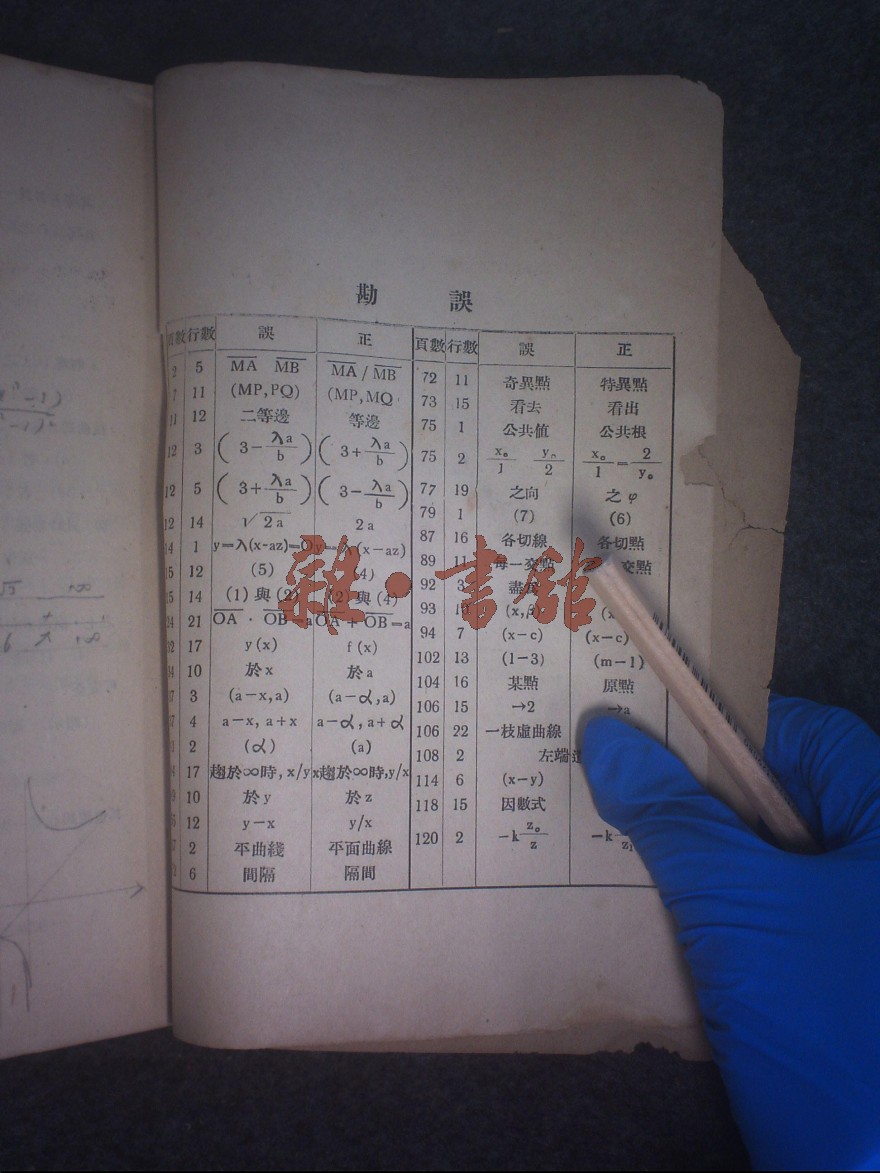 勘 誤
頁數 行數 誤 正
2 5 MA MB MA/MB
7 11 (MP,PQ) (MP,MQ
11 12 二等邊 等邊
12 3 (3-λa/b) (3+λa/b)
12 5 (3+λa/b) (3-λa/b)
12 14 √2a 2a
14 1 y=λ(x-az)=0 y=λ(x-az)
15 12 (5) (4)
15 14 (1)與(2) (2)與(4)
24 21 OA·OB=a OA+OB=a
32 17 y(x) f(x)
34 10 於x 於a
37 3 (a-x,a) (a-α,a)
37 4 a-x, a+x a-α,a+α
2 (α) (a)
17 趨於∞時, x/y x趨於∞時,y/x
10 於y 於z
12 y-x y/x
2 平曲綫 平面曲線
6 間隔 隔間
頁數 行數 誤 正
72 11 奇異點 特異點
73 15 看去 看出
75 1 公共值 公共根
75 2 x₀/1 y₀/2 x₀/1=2/y₀
77 19 之向 之φ
79 1 (7) (6)
87 16 各切線 各切點
89 11 每一交點 交點
92 3 盡
93 (x,β) (x
94 7 (x-c) (x-c)
102 13 (1-3) (m-1)
104 16 某點 原點
106 15 →2 →a
106 22 一枝虛曲線
108 2 左端
114 6 (x-y)
118 15 因數式
120 2 -k z₀/z -k z₁
雜·書館